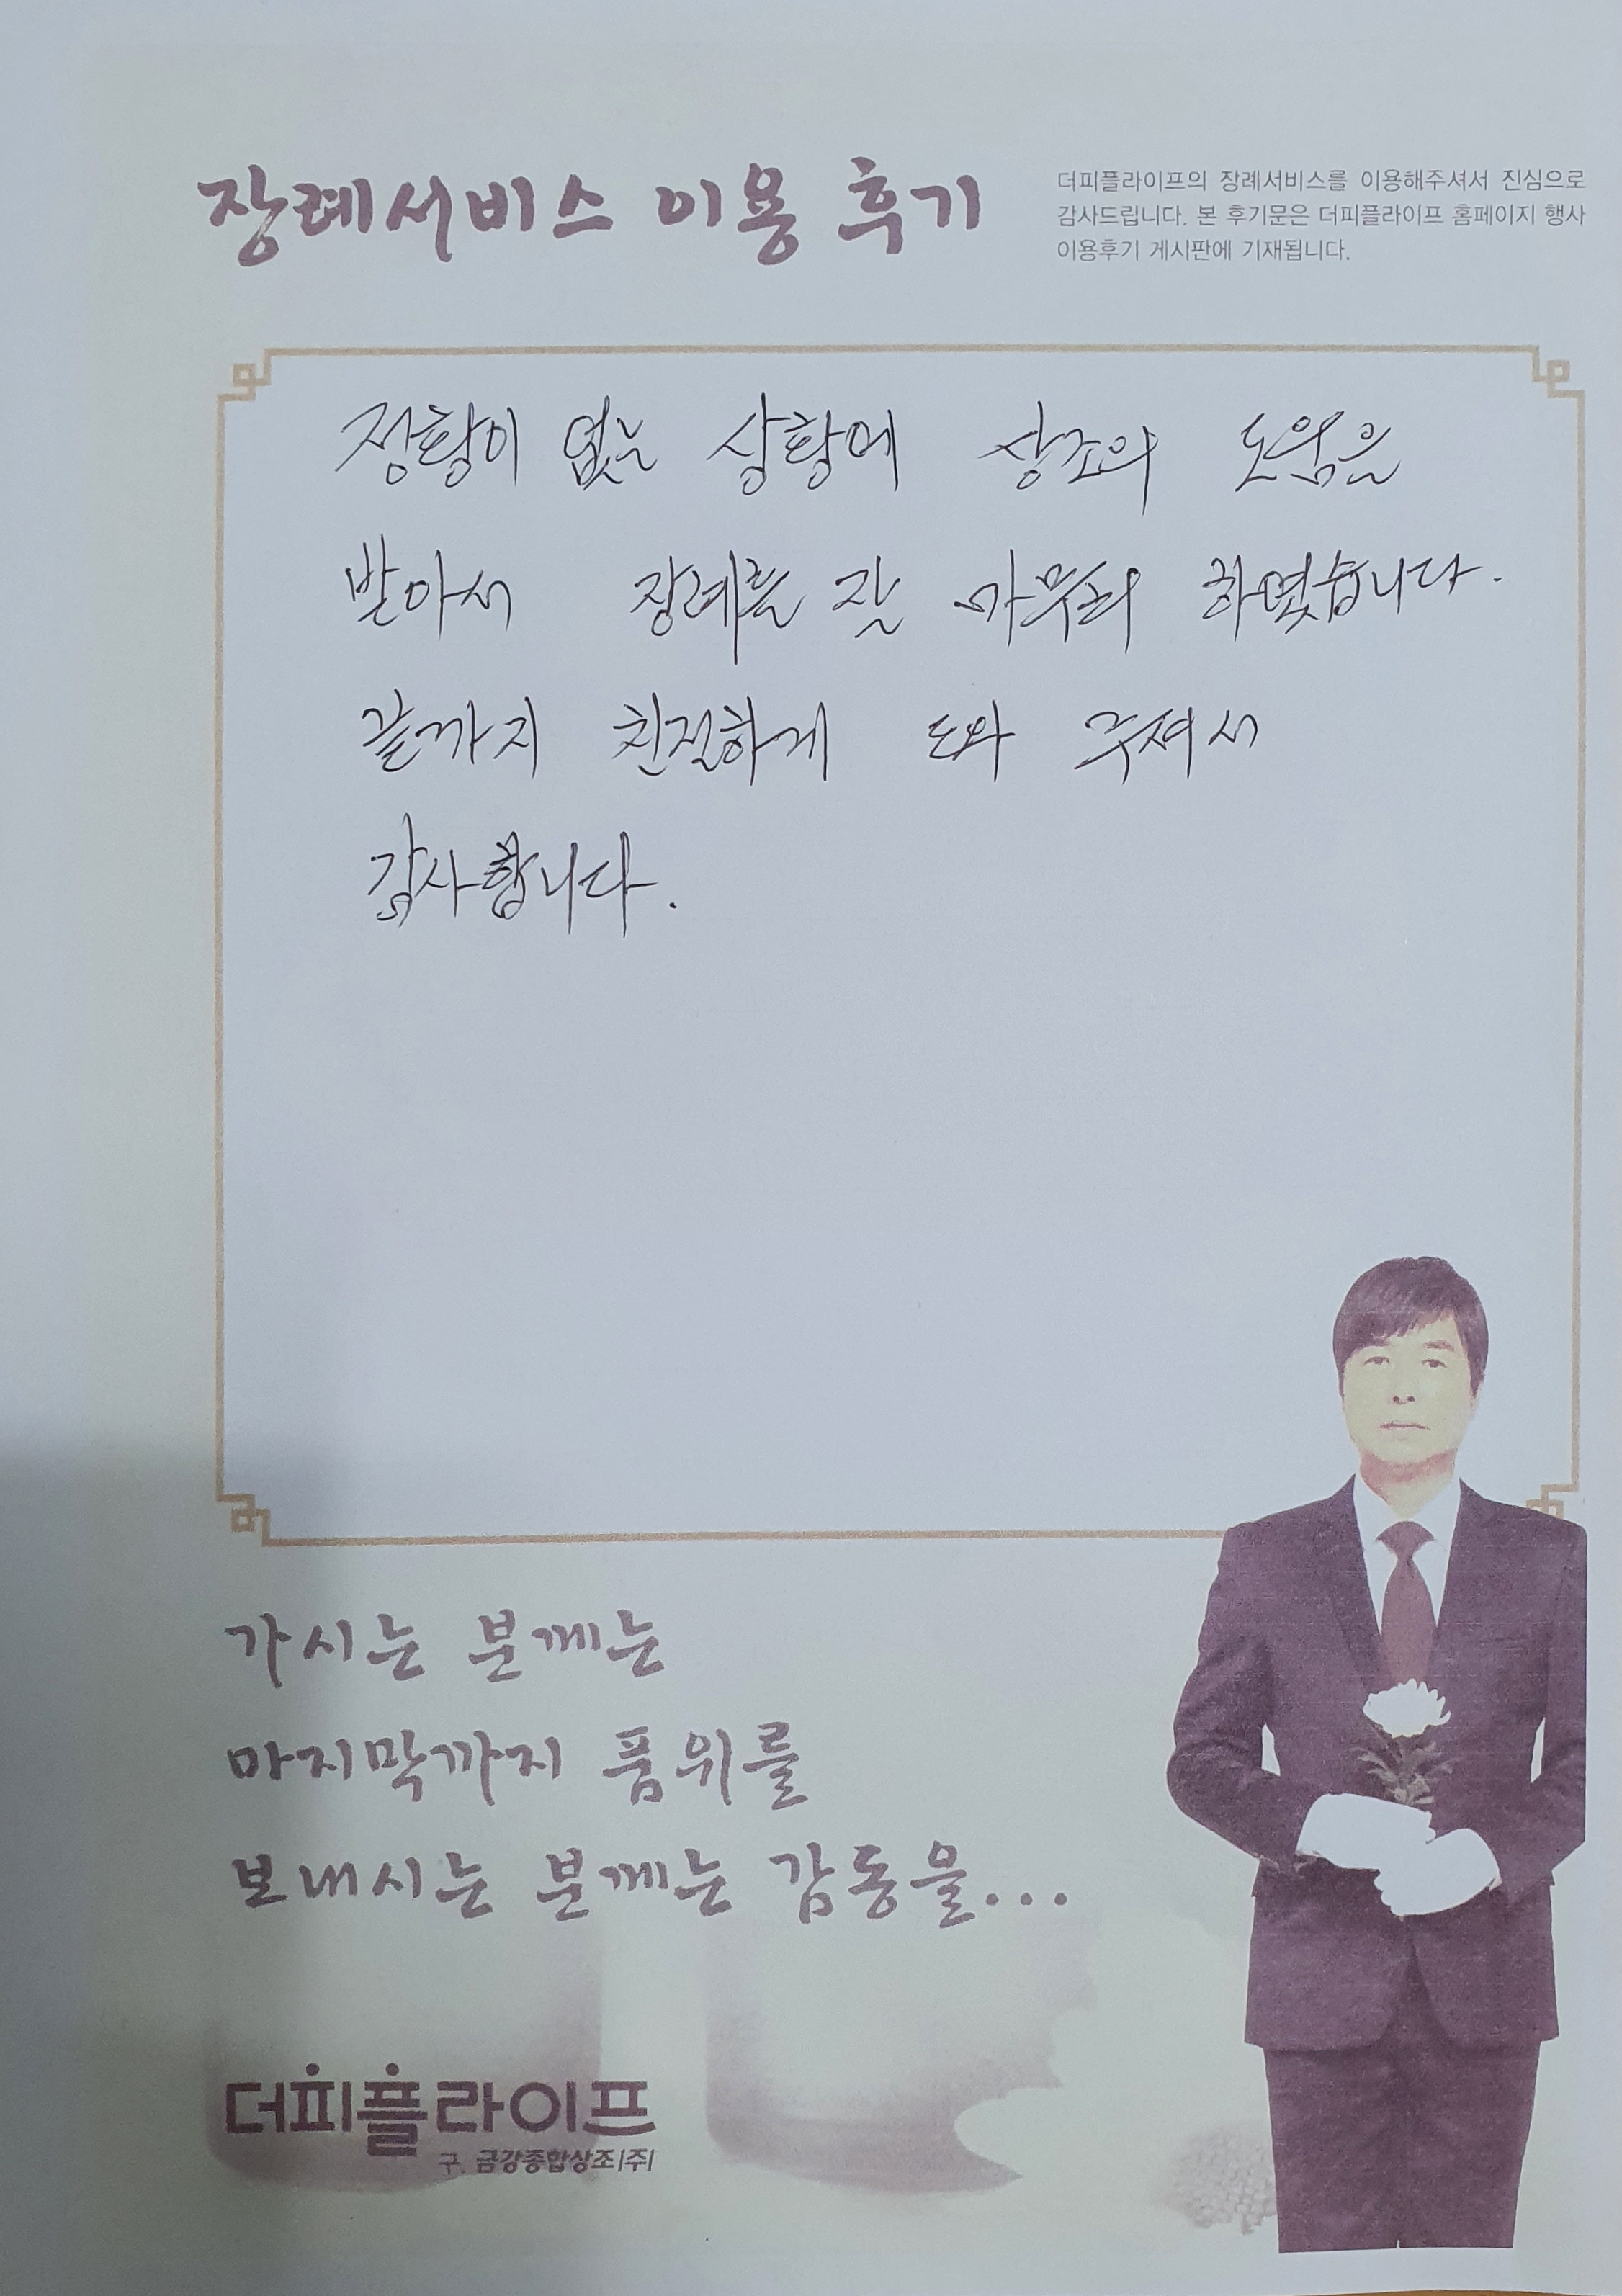 장례서비스 이용 후기
더피플라이프의 장례서비스를 이용해주셔서 진심으로
감사드립니다. 본 후기문은 더피플라이프 홈페이지 행사
이용후기 게시판에 기재됩니다.
정황이 없는 상황에 상조의 도움을
받아서 장례를 잘 마무리 하였습니다.
끝까지 친절하게 도와 주셔서
감사합니다.
가시는 분께는
마지막까지 품위를
보내시는 분께는 감동을...
더피플라이프
구. 금강종합상조(주)